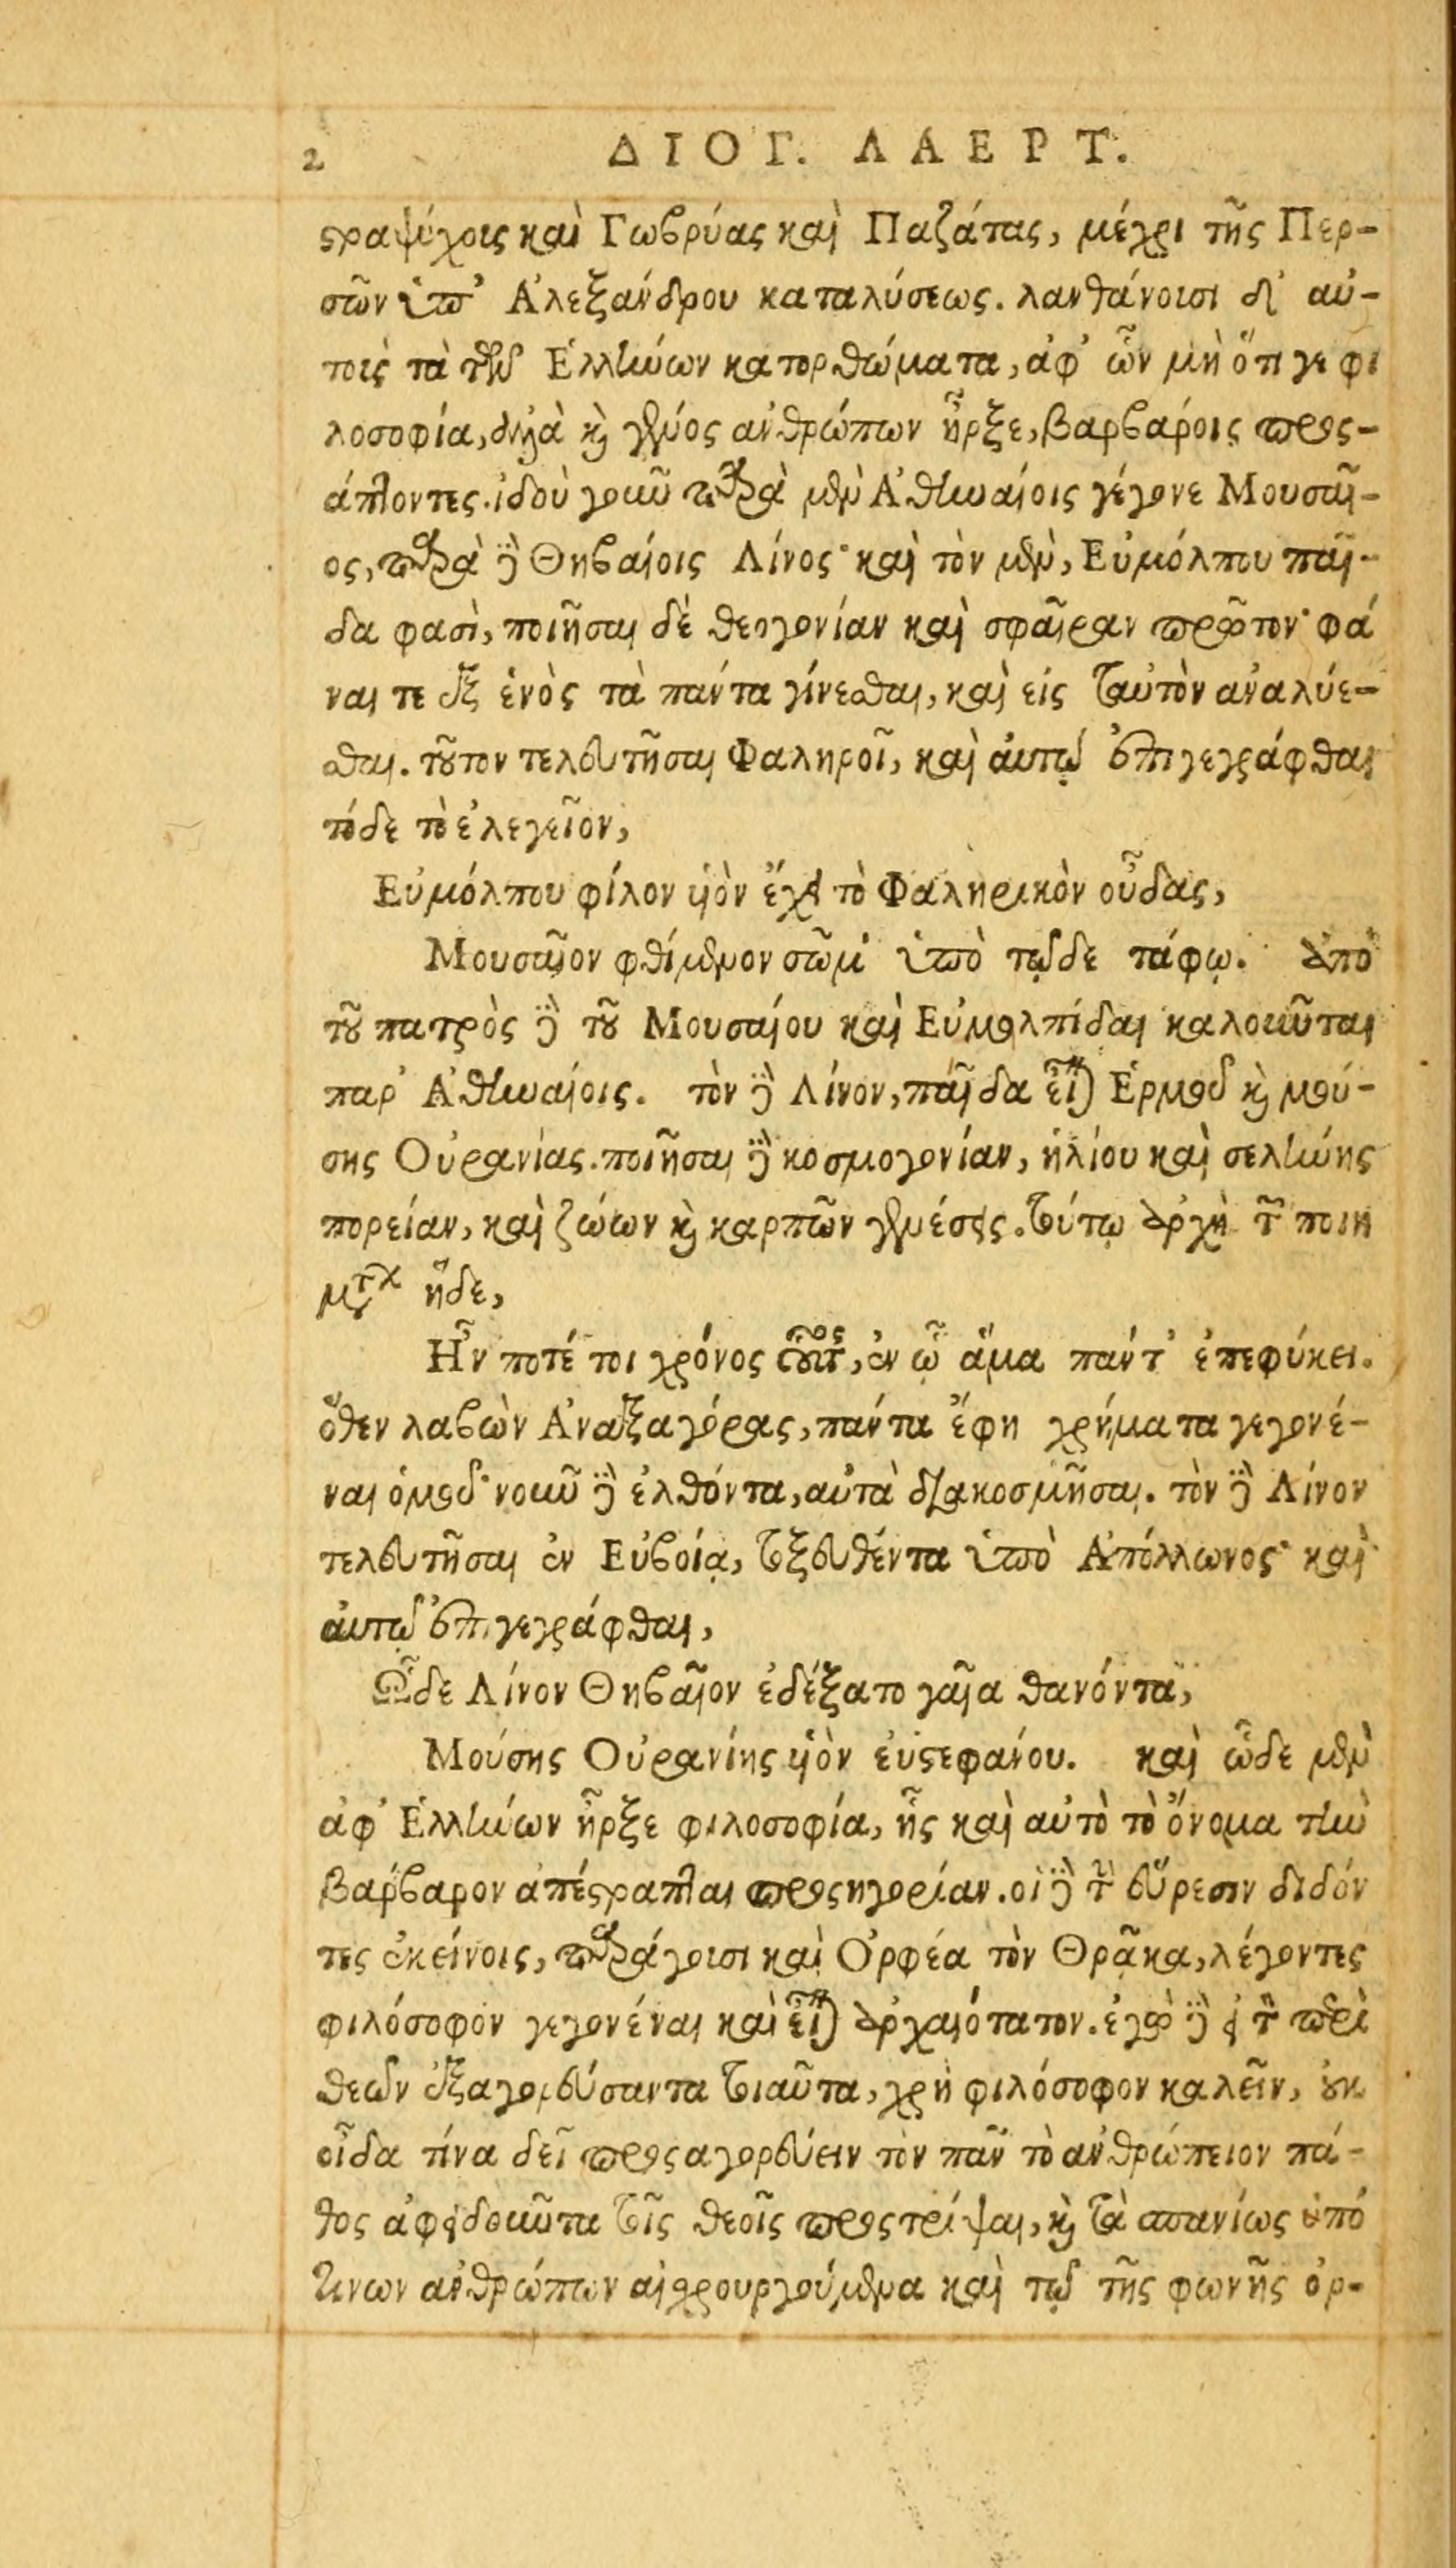 2 ΔΙΟΓ. ΛΑΕΡΤ.
ϛραψύχους καὶ Γωβρύας καὶ Παζάτας, μέχρι τῆς Περ-
σῶν ὑπ' Ἀλεξάνδρου καταλύσεως. λανθάνουσι δ' αὑ-
τοὺς τὰ τῶν Ἑλλήνων κατορθώματα, ἀφ' ὧν μὴ ὅτι γε φι
λοσοφία, ἀλλὰ καὶ γένος ἀνθρώπων ἦρξε, βαρβάροις προς-
άπτοντες. ἰδοὺ γοῦν παρὰ μὲν Ἀθηναίοις γέγονε Μουσαῖ-
ος, παρὰ δὲ Θηβαίοις Λίνος· καὶ τὸν μὲν, Εὐμόλπου παῖ-
δα φασὶ, ποιῆσαι δὲ θεογονίαν καὶ σφαῖραν πρῶτον· φά
ναι τε ἐξ ἑνὸς τὰ πάντα γίνεσθαι, καὶ εἰς ταὐτὸν ἀναλύε-
σθαι. τοῦτον τελευτῆσαι Φαληροῖ, καὶ αὐτῷ ἐπιγεγράφθαι
τόδε τὸ ἐλεγεῖον,
Εὐμόλπου φίλον υἱὸν ἔχει τὸ Φαληρικὸν οὖδας,
Μουσαῖον φθίμενον σῶμ' ὑπὸ τῷδε τάφῳ. ἀπὸ
τοῦ πατρὸς δὲ τοῦ Μουσαίου καὶ Εὐμολπίδαι καλοῦνται
παρ' Ἀθηναίοις. τὸν δὲ Λίνον, παῖδα εἶναι Ἑρμοῦ καὶ μού-
σης Οὐρανίας. ποιῆσαι δὲ κοσμογονίαν, ἡλίου καὶ σελήνης
πορείαν, καὶ ζώων καὶ καρπῶν γενέσεις. τούτῳ ἀρχὴ τῶν ποιη
μάτων ἥδε,
Ἦν ποτέ τοι χρόνος οὗτος, ἐν ᾧ ἅμα πάντ' ἐπεφύκει.
ὅθεν λαβὼν Ἀναξαγόρας, πάντα ἔφη χρήματα γεγονέ-
ναι ὁμοῦ· νοῦν δὲ ἐλθόντα, αὐτὰ διακοσμῆσαι. τὸν δὲ Λίνον
τελευτῆσαι ἐν Εὐβοίᾳ, τοξευθέντα ὑπὸ Ἀπόλλωνος· καὶ
αὐτῷ ἐπιγεγράφθαι,
Ὧδε Λίνον Θηβαῖον ἐδέξατο γαῖα θανόντα,
Μούσης Οὐρανίης υἱὸν ἐυϛεφάνου. καὶ ὧδε μὲν
ἀφ' Ἑλλήνων ἦρξε φιλοσοφία, ἧς καὶ αὐτὸ τὸ ὄνομα τὴν
βάρβαρον ἀπέϛραπται προςηγορίαν. οἱ δὲ τὴν εὕρεσιν διδόν
τες ἐκείνοις, παράγουσι καὶ Ὀρφέα τὸν Θρᾷκα, λέγοντες
φιλόσοφον γεγονέναι καὶ εἶναι ἀρχαιότατον. ἐγὼ δὲ εἰ τὸν περὶ
θεῶν ἐξαγορεύσαντα τοιαῦτα, χρὴ φιλόσοφον καλεῖν, οὐκ
οἶδα τίνα δεῖ προςαγορεύειν τὸν πᾶν τὸ ἀνθρώπειον πά-
θος ἀφειδοῦντα τοῖς θεοῖς προςτρίψαι, καὶ τὰ σπανίως ὑπό
τινων ἀνθρώπων αἰσχρουργούμενα καὶ τῷ τῆς φωνῆς ὀρ-